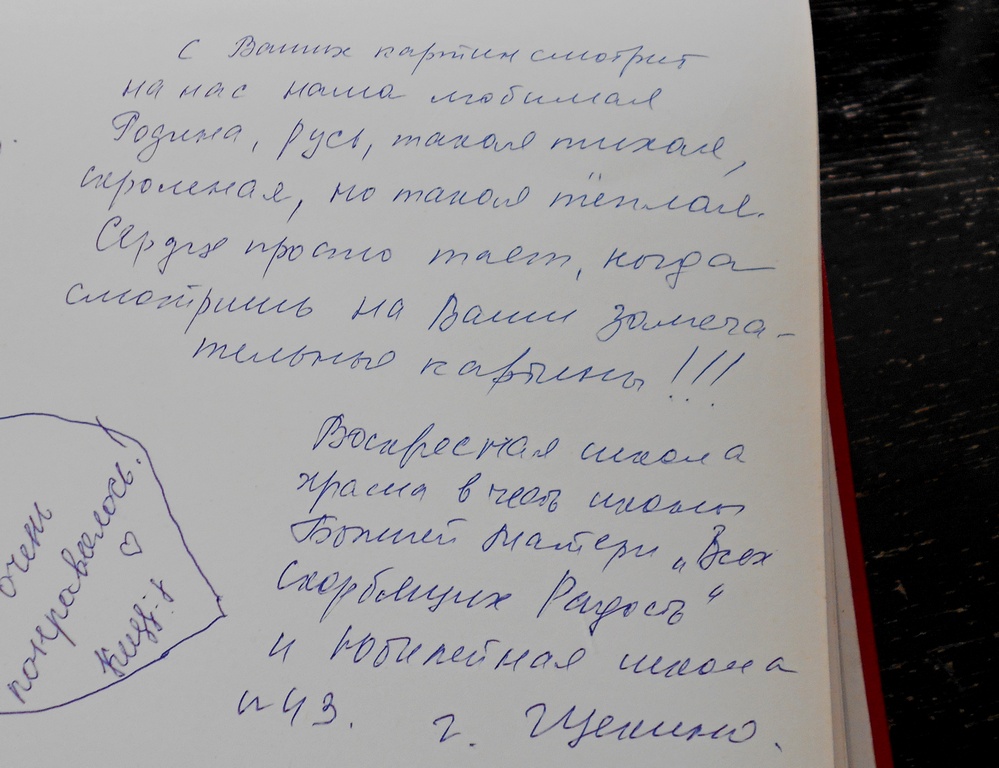 С Ваших картин смотрит
на нас наша любимая
Родина, русь, такая тихая,
скромная, но такая тёплая.
Сердце просто тает, когда
смотришь на Ваши замеча-
тельные картины!!!
Воскресная школа
храма в честь иконы
Божией Матери „Всех
Скорбящих Радость“
и Юбилейная школа
n43. г. Щекино.
очень
понравилось!